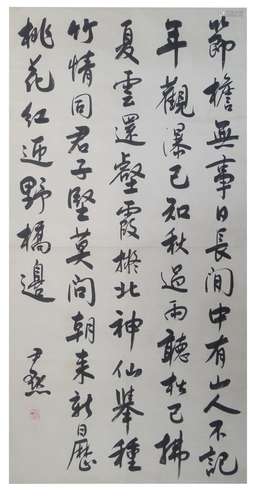 節檐無事日長閒中有山人不記
年觀瀑已知秋過雨聽松已拂
夏雲還壑霞擬比神仙舉種
竹情同君子堅莫問朝来新日歷
桃花红近野橋邊
尹默